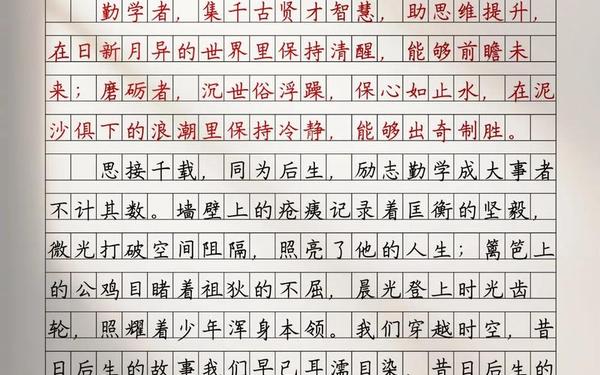 勤学者，集千古贤才智慧，助思维提升，
在日新月异的世界里保持清醒，能够前瞻未
来；磨砺者，沉世俗浮躁，保心如止水，在泥
沙俱下的浪潮里保持冷静，能够出奇制胜。
思接千载，同为后生，励志勤学成大事者
不计其数。墙壁上的疮痍记录着匡衡的坚毅，
微光打破空间阻隔，照亮了他的人生；篱笆上
的公鸡目睹着祖狄的不屈，晨光登上时光齿
轮，照耀着少年浑身本领。我们穿越时空，昔
日后生的故事我们早已耳濡目染。昔日后生的